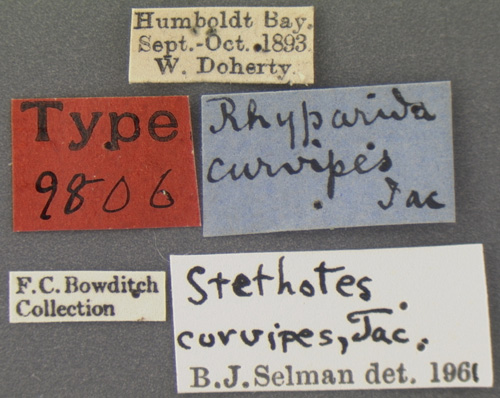 Humboldt Bay.
Sept.-Oct. 1893.
W. Doherty.
Type
9806
Rhyparida
curvipes
Jac
F.C. Bowditch
Collection
Stethotes
curvipes, Jac.
B.J. Selman det. 1961